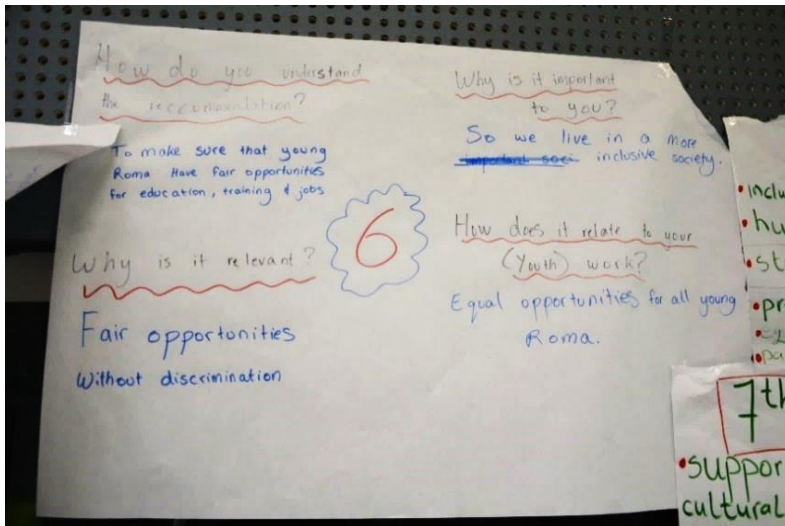 How do you understand
the reccomendation?
To make sure that young
Roma Have fair opportunities
for education, training & jobs
Why is it relevant?
Fair opportunities
Without discrimination
6
Why is it important
to you?
So we live in a more
important soci inclusive society.
How does it relate to your
(Youth) work?
Equal opportunities for all young
Roma.
•inclu
•hu
•st
•pr
7th
•suppor
cultural